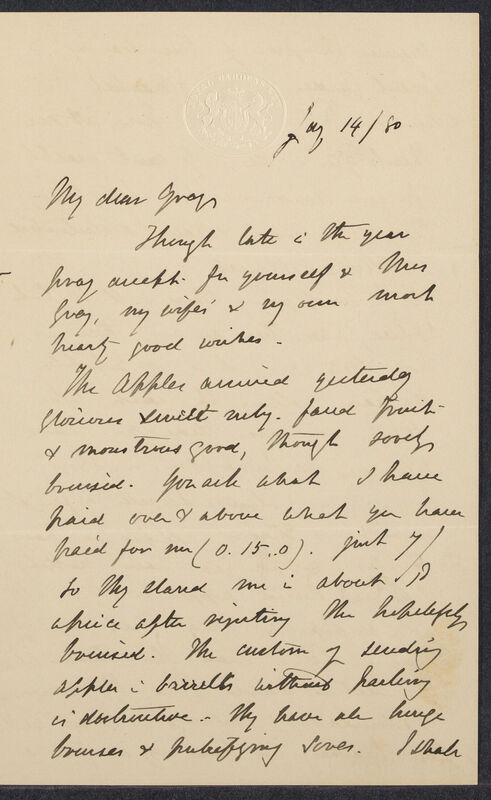 Jany 14/80
My dear Gray
Though late i the year
pray accept for yourself & Mrs
Gray, my wife's & my own most
hearty good wishes.
The Apples arrived yesterday
glorious & fruit
& monstrous good, though sorely
bruised. You ask what I have
paid over & above what you have
paid for me (0.15.0). just 7/
so they stand me i about 1d
apiece after rejecting the hopelessly
bruised. The custom of sending
apples i barrells without packing
is destructive. They have all huge
bruises & putrefying sores. I shall